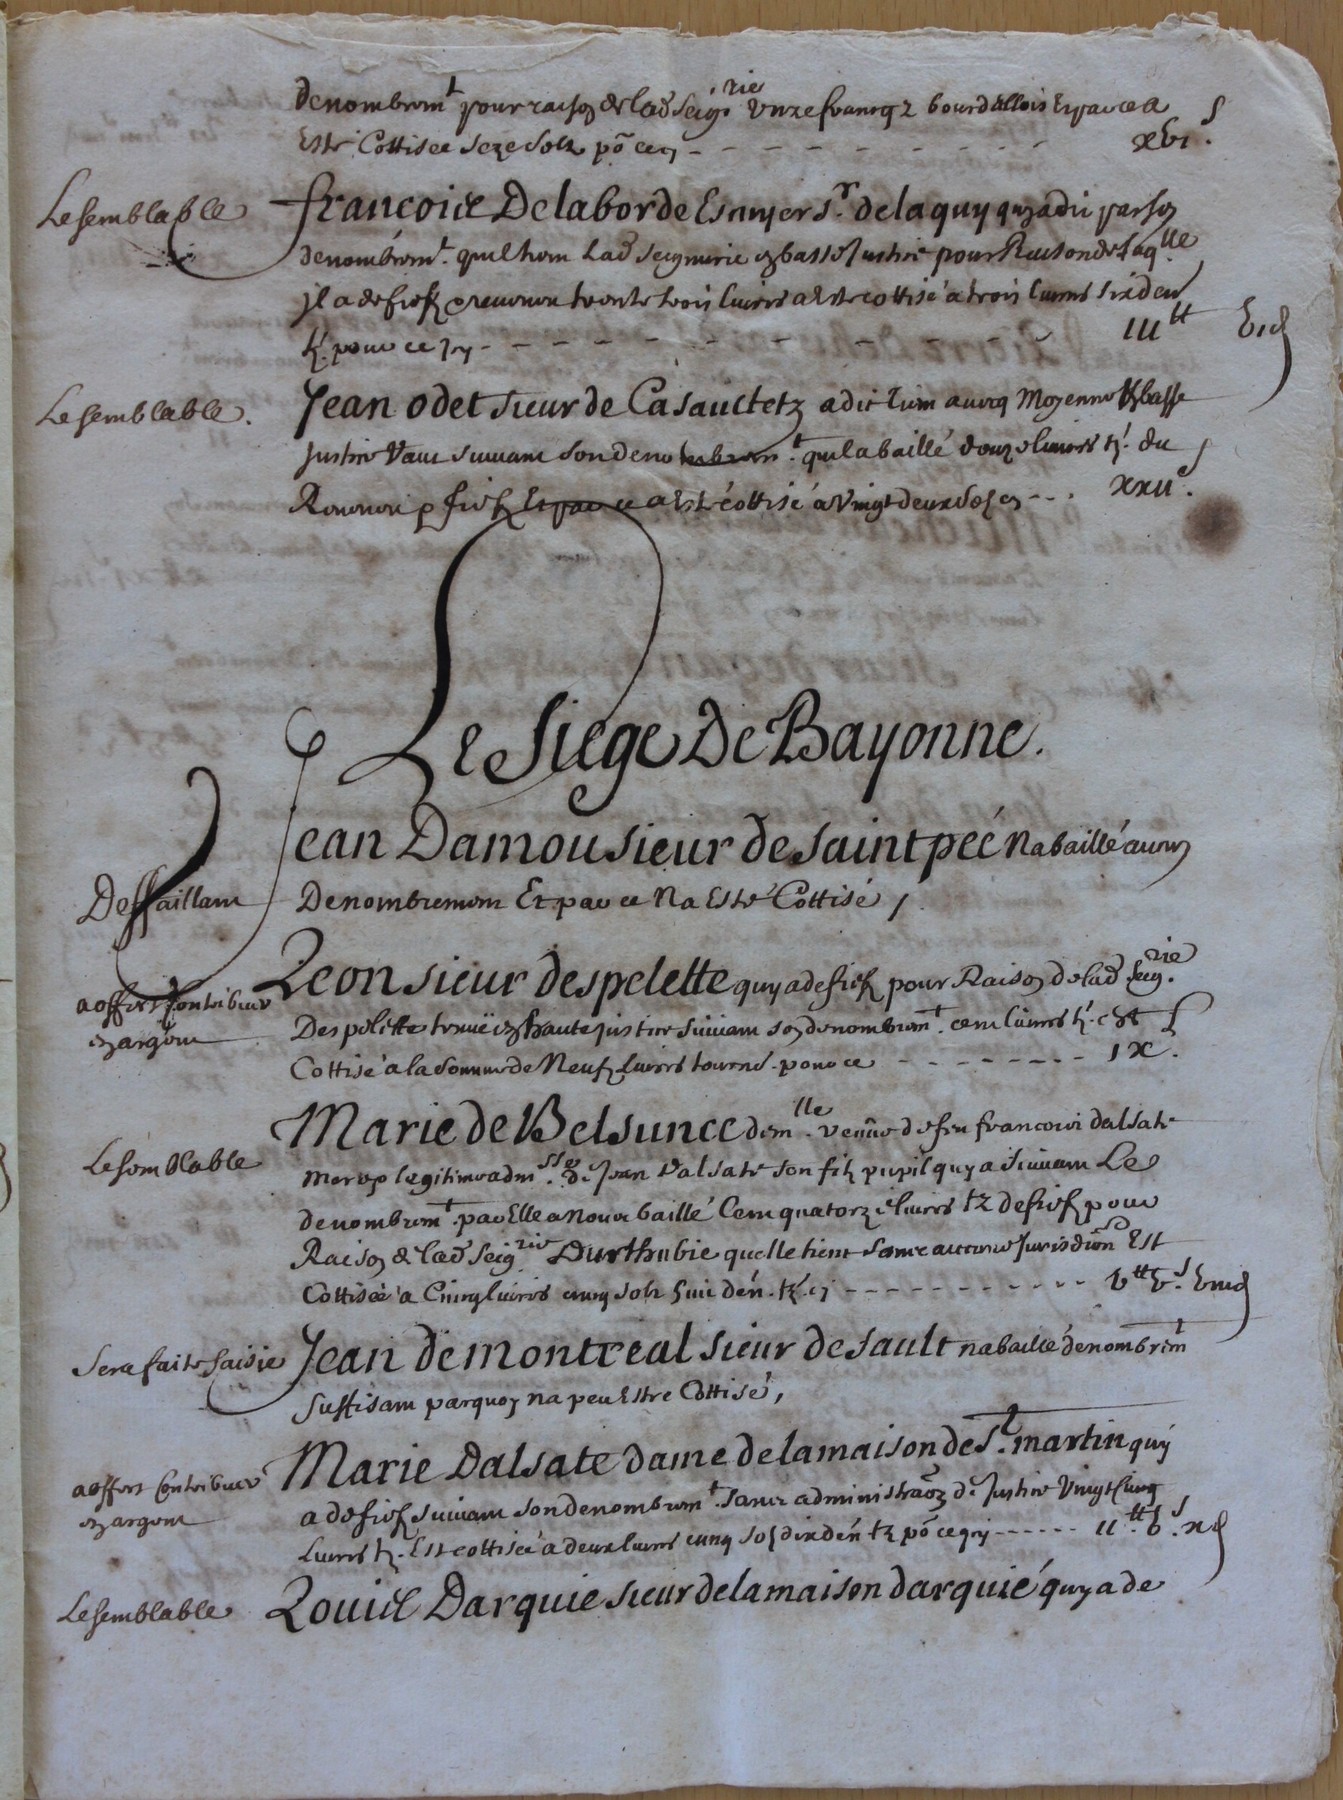 denombrem.t pour raison de lad seig.rie unze francqz bourdellois Et par ce a
Esté Cottisée seze solz po ce cy - - - - - - - - xvi s.
Le semblable
francoice Delaborde Escuyer s.r delaquy quy a dit par son
denombrem.t qu'il tient Lad seigneurie en basse Justice pour Raison de laq.lle
jl a de fief et revenu trente trois livres a Esté cottisé a trois livres six den
tz. pour ce Jcy - - - - - - - - - - iii tt vi d
Le semblable.
Jean odet sieur de Casauctetz a dit tient avecq Moyenne Et basse
Justice Vaut suivant son denombrem.t qu'il a baillé douze livres tz. du
Revenu p fief Et par ce a Esté cottisé a Vingt deux solz cy - - . xxii s.
Le Siege De Bayonne.
Jean Damou sieur de saint peé N a baillé aucun
Deffaillant
Denombrement Et par ce Na Esté Cottisé /
Leon sieur despelette quy a de fief pour Raison de lad seig.rie
a offert Contribuer
en argent
Despelette tenuë en haute justice suivant son denombrem.t cent livres tz. est
Cottisé a la somme de Neuf livres tourns. pour ce - - - - - - - - ix.
Marie de Belsunce dem.lle veufve de feu francois dalsate
Le semblable
mere et legitime adm.sse de Jean dalsate son filz pupil quy a suivant Le
denombrem.t par Elle a Nous baillé Cent quatorze livres tz de fief pour
Raison de lad seig.rie Durthubie quelle tient sans aucune Jurisdion Est
Cottisée a Cinq livres cinq solz huit den. tz. cy - - - - - - - - - - v tt v s viii d
Sera faite saisie
Jean de montreal sieur de sault na baillé denombrem.t
suffisant parquoy na peu Estre Cottisé,
Marie Dalsate dame de la maison de S.t martin quy
a offert Contribuer
en argent
a de fief suivant son denombrem.t sans administraon de Justice Vingt Cinq
Livres tz. Est cottisée a deux livres cinq solz dix den tz po ce cy - - - - - - ii tt v s x d
Le semblable
Louis Darquie sieur de la maison darquié quy a de